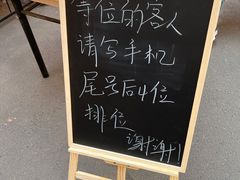 等位的客人
请写手机
尾号后4位
排位
谢谢!